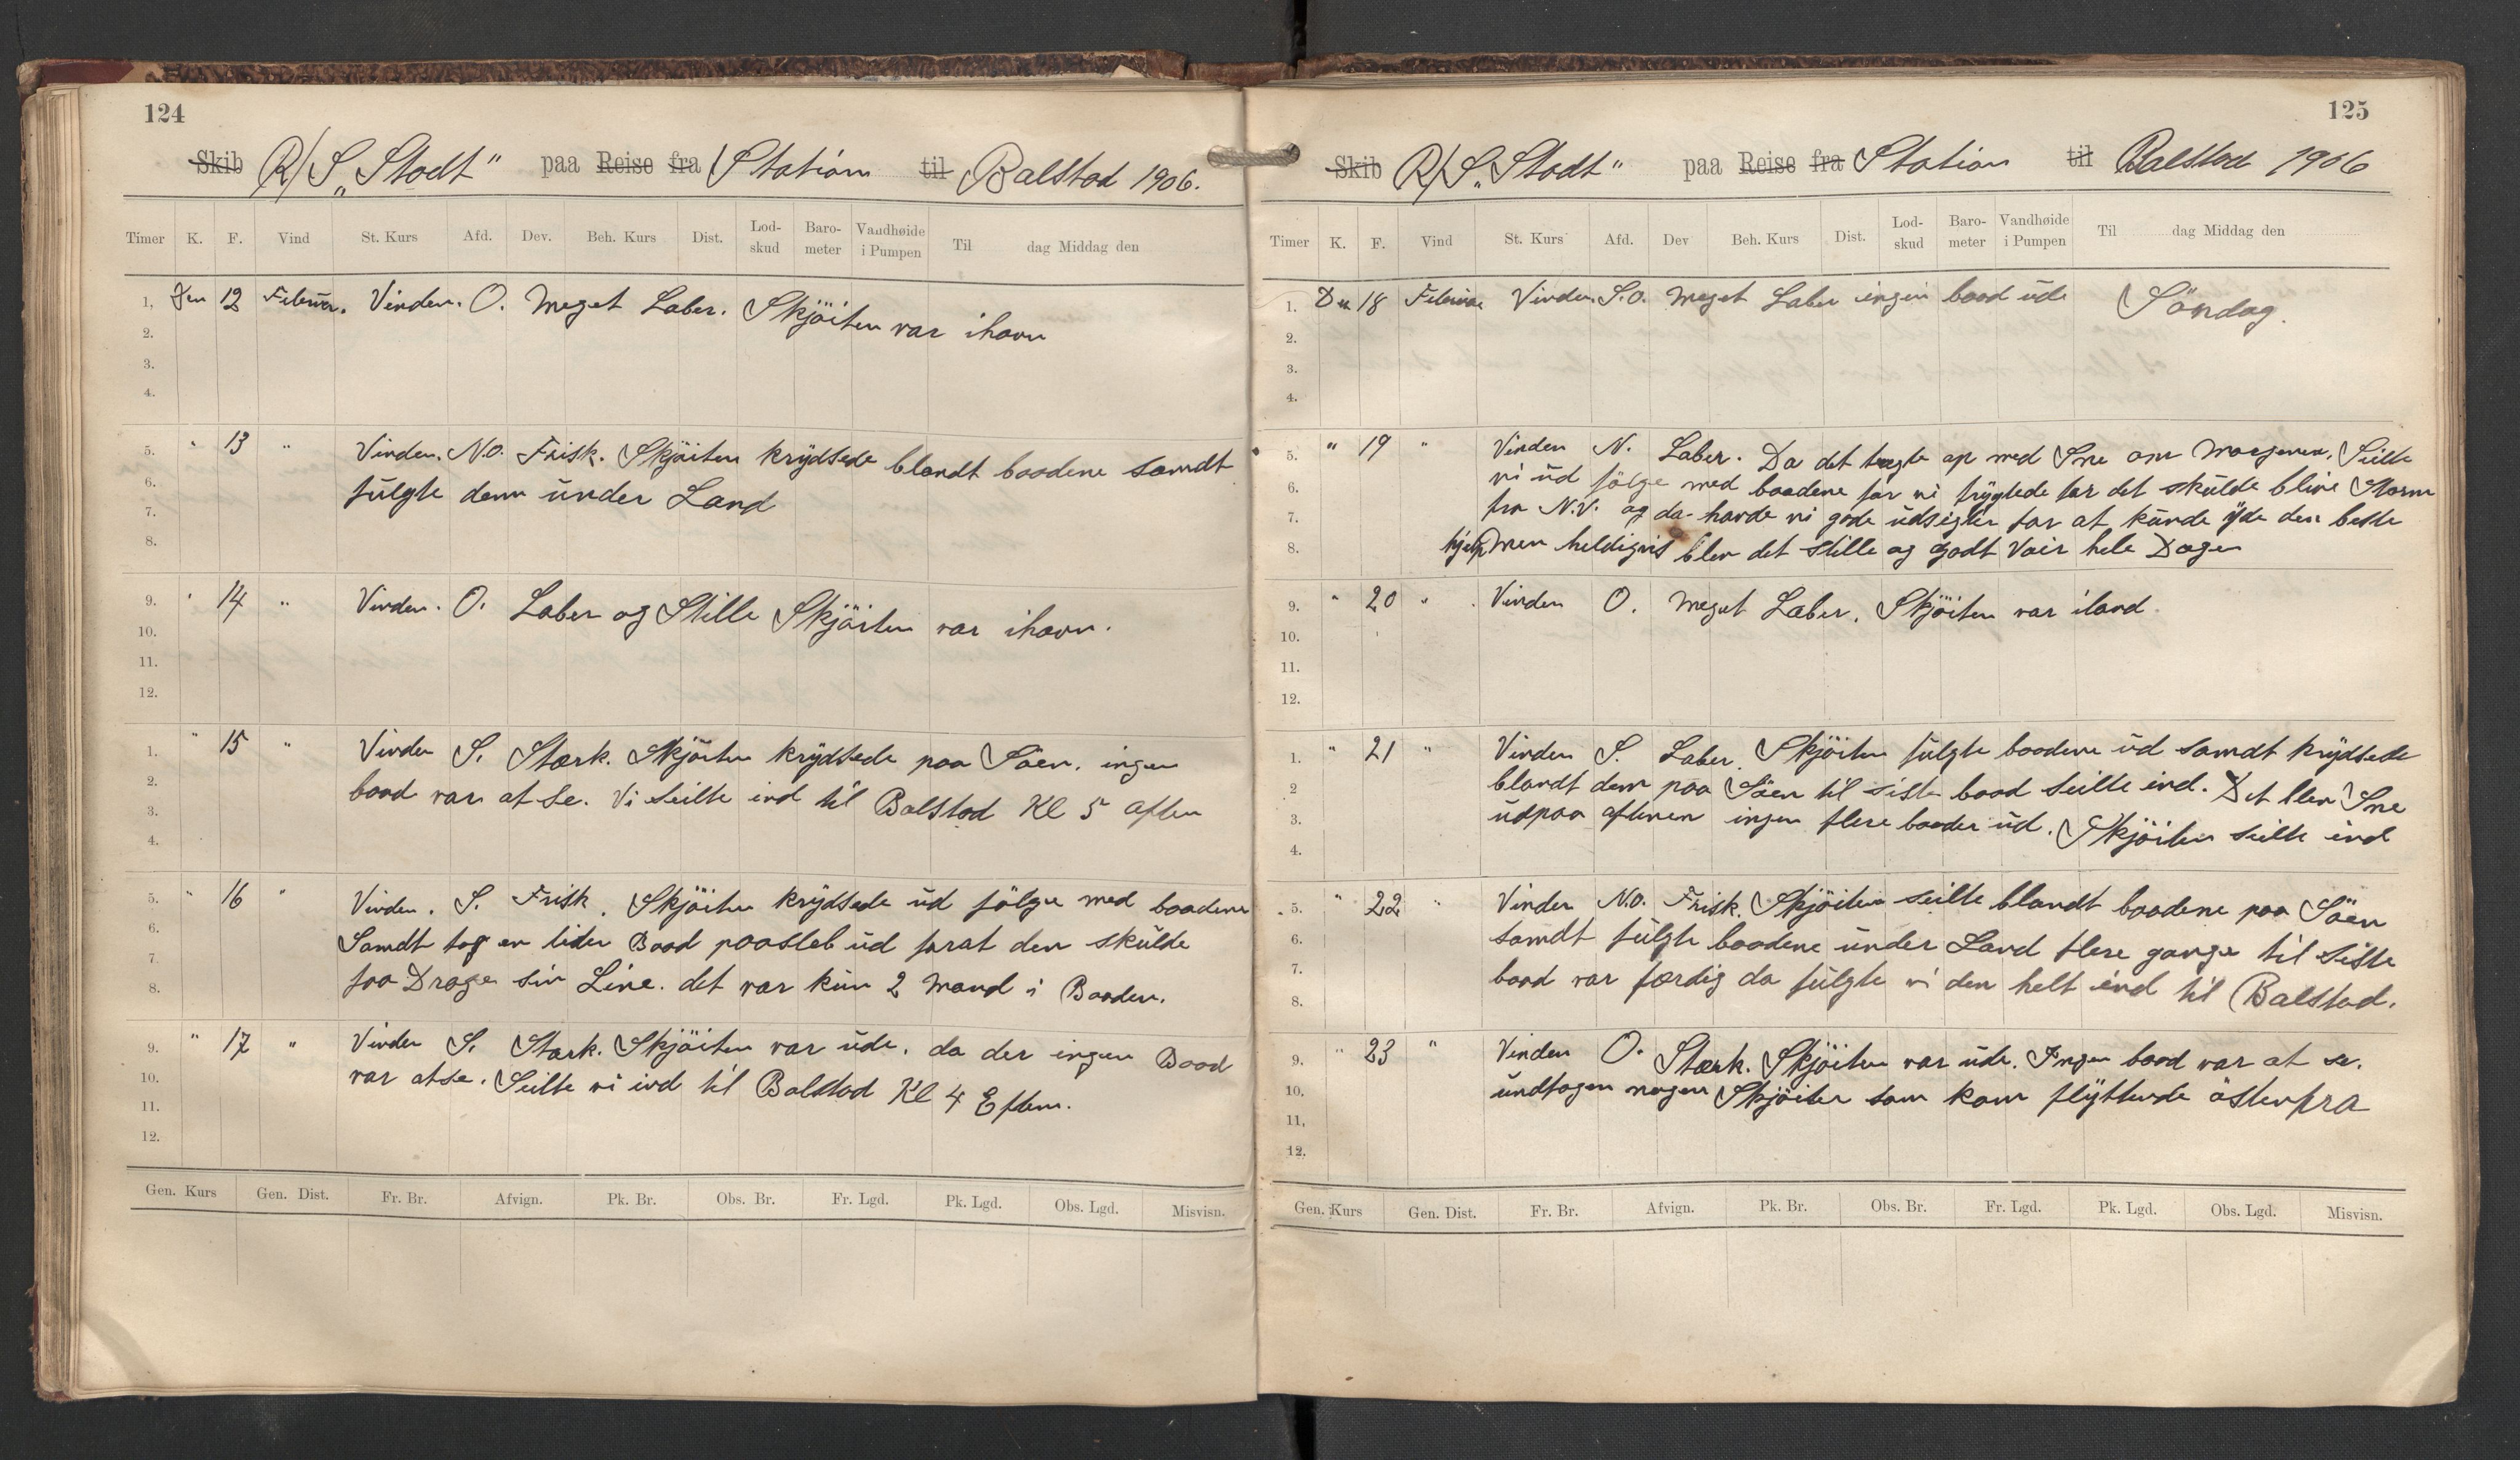 124
Skib R/S „Stadt" paa Reise fra Station til Balstad 1906.
Timer K. F. Vind St. Kurs Afd. Dev. Beh. Kurs Dist. Lod-skud Baro-meter Vandhøide i Pumpen Til dag Middag den
1. Den 12 Februar. Vinden. O. Meget Laber. Skjöiten var ihavn
2.
3.
4.
5. " 13 " Vinden. N.O. Frisk. Skjöiten krydsede blandt baadene samdt
6. fulgte dem under Land
7.
8.
9. " 14 " Vinden. O. Laber og Stille Skjöiten var ihavn.
10.
11.
12.
1. " 15 " Vinden S. Stærk. Skjöiten krydsede paa Söen. ingen
2. baad var at se. Vi seilte ind til Balstad Kl 5 aften
3.
4.
5. " 16 " Vinden. S. Frisk. Skjöiten krydsede ud fölge med baadene
6. Samdt tog en liden Baad paasleb ud forat den skulde
7. faa Drage sin Line. det var kun 2 Mand i Baaden.
8.
9. " 17 " Vinden S. Stærk. Skjöiten var ude. da der ingen Baad
10. var atse. Seilte vi ind til Balstad Kl 4 Eftem.
11.
12.
Gen. Kurs Gen. Dist. Fr. Br. Afvign. Pk. Br. Obs. Br. Fr. Lgd. Pk. Lgd. Obs. Lgd. Misvisn.
125
Skib R/S „Stadt" paa Reise fra Station til Balstad 1906
Timer K. F. Vind St. Kurs Afd. Dev Beh. Kurs Dist. Lod-skud Baro-meter Vandhøide i Pumpen Til dag Middag den
1. Den 18 Februar Vinden. S.O. Meget Laber ingen baad ude Söndag.
2.
3.
4.
5. " 19 " Vinden N. Laber. Da det trægte op med Sne om Morgenen. Seilte
6. vi ud fölge med baadene for vi frygtede for det skulde blive Storm
7. fra N.V. og da havde vi gode udsigter for at kunde yde den beste
8. hjelp men heldigvis blev det stille og godt Veir hele Dagen
9. " 20 " Vinden O. Meget Laber. Skjöiten var iland
10.
11.
12.
1. " 21 " Vinden S. Laber. Skjöiten fulgte baadene ud samdt krydsede
2 blandt dem paa Söen til siste baad seilte ind. Det blev Sne
3. udpaa aftenen ingen flere baader ud. Skjöiten seilte ind
4.
5. " 22 " Vinden N.O. Frisk. Skjöiten seilte blandt baadene paa Söen
6. samdt fulgte baadene under Land flere gange til siste
7. baad var færdig da fulgte vi den helt ind til Balstad.
8.
9. " 23 " Vinden O. Stærk. Skjöiten var ude. Ingen baad var at se.
10. undtagen nogen Skjöiter som kom flyttende östenfra
11.
12.
Gen. Kurs Gen. Dist. Fr. Br. Afvign. Pk. Br. Obs. Br. Fr. Lgd. Pk. Lgd. Obs. Lgd. Misvisn.